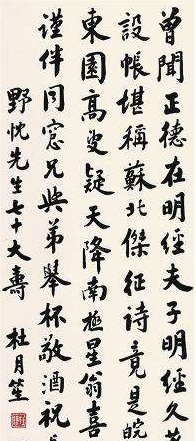 曾聞正德在明經夫子明經久
設帳堪稱蘇北傑征詩竟是皖
東園高叟疑天降南極星翁喜
謹伴同窓兄與弟舉杯敬酒祝
野忱先生七十大壽
杜月笙